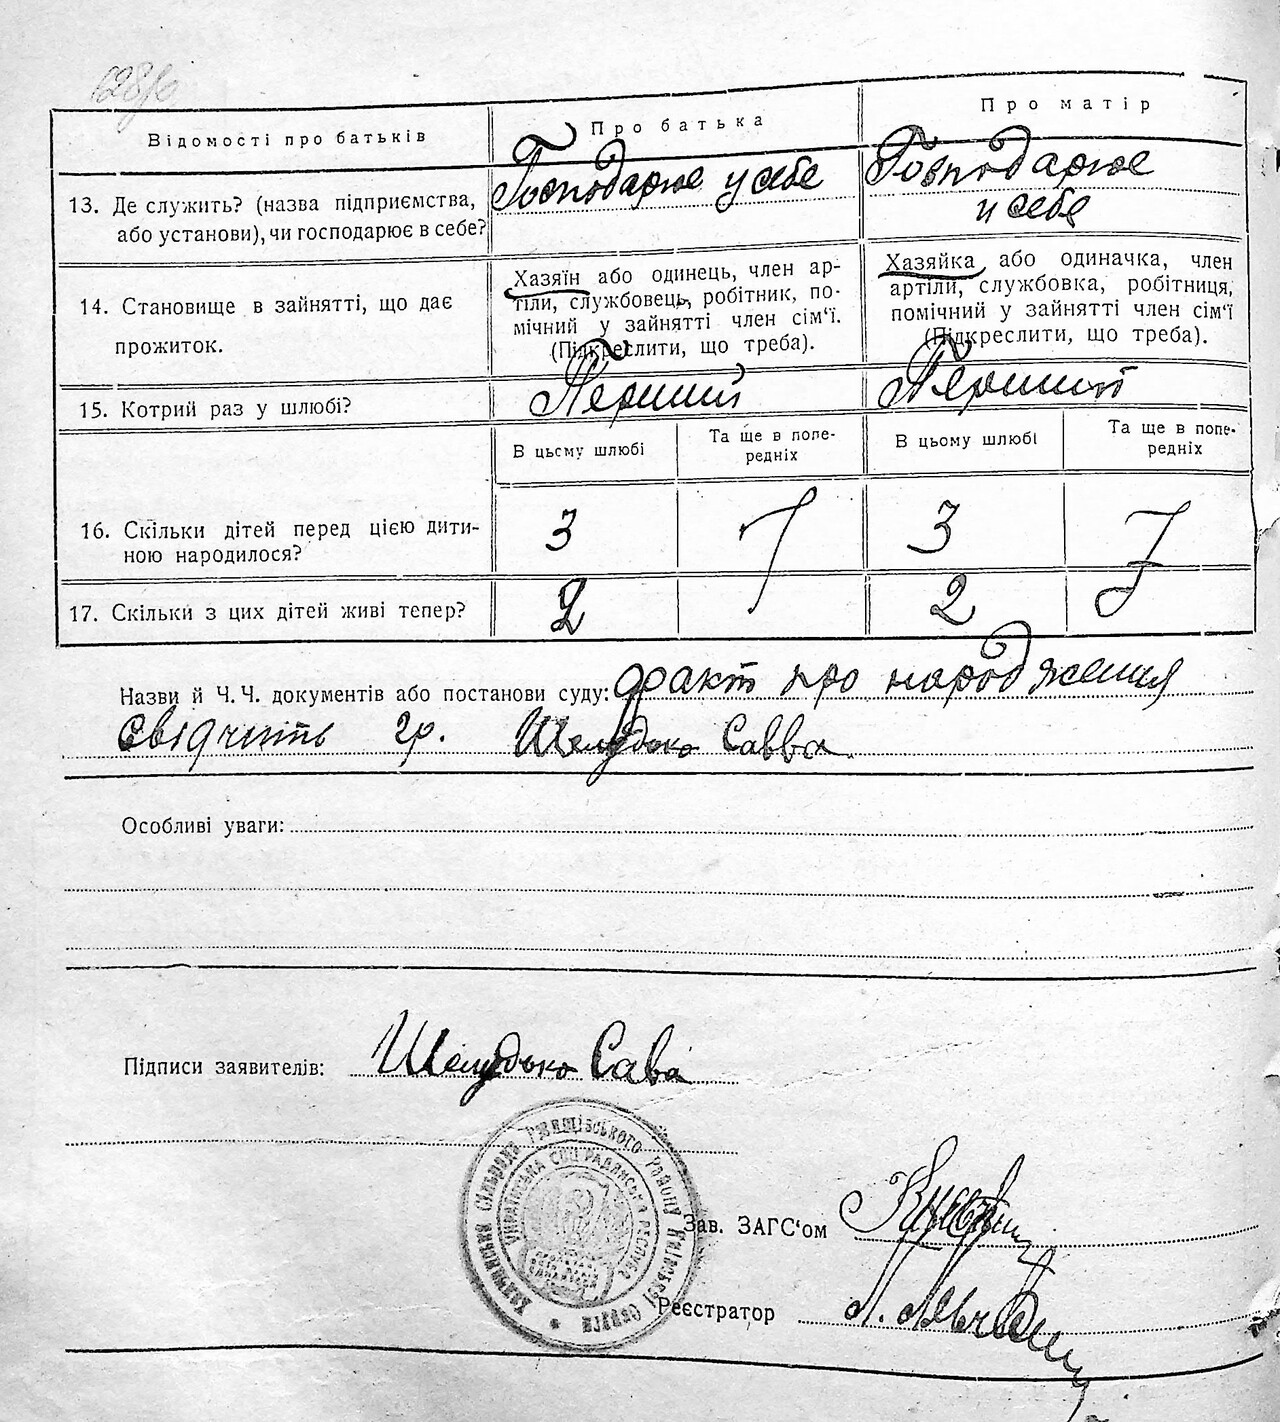 Відомості про батьків
Про батька
Про матір
13. Де служить? (назва підприємства, або установи), чи господарює в себе?
Господарює у себе
Господарює
и себе
14. Становище в зайнятті, що дає
прожиток.
Хазяїн або одинець, член ар-
тіли, службовець, робітник, по-
мічний у зайнятті член сім'ї.
(Підкреслити, що треба).
Хазяйка або одиначка, член
артіли, службовка, робітниця,
помічний у зайнятті член сім'ї
(Підкреслити, що треба).
15. Котрий раз у шлюбі?
Перший
Перший
В цьому шлюбі
Та ще в попе-
редніх
В цьому шлюбі
Та ще в попе-
редніх
16. Скільки дітей перед цією дити-
ною народилося?
3
3
17. Скільки з цих дітей живі тепер?
2
2
Назви й Ч.Ч. документів або постанови суду: факт про народження
свідчить гр. Шелудько Савва
Особливі уваги:
Підписи заявителів: Шелудько Сава
Сільрада Ржищівського Району Київської Округи
Українська Соц. Радянська Республ.
Зав. ЗАГС'ом
Реєстратор